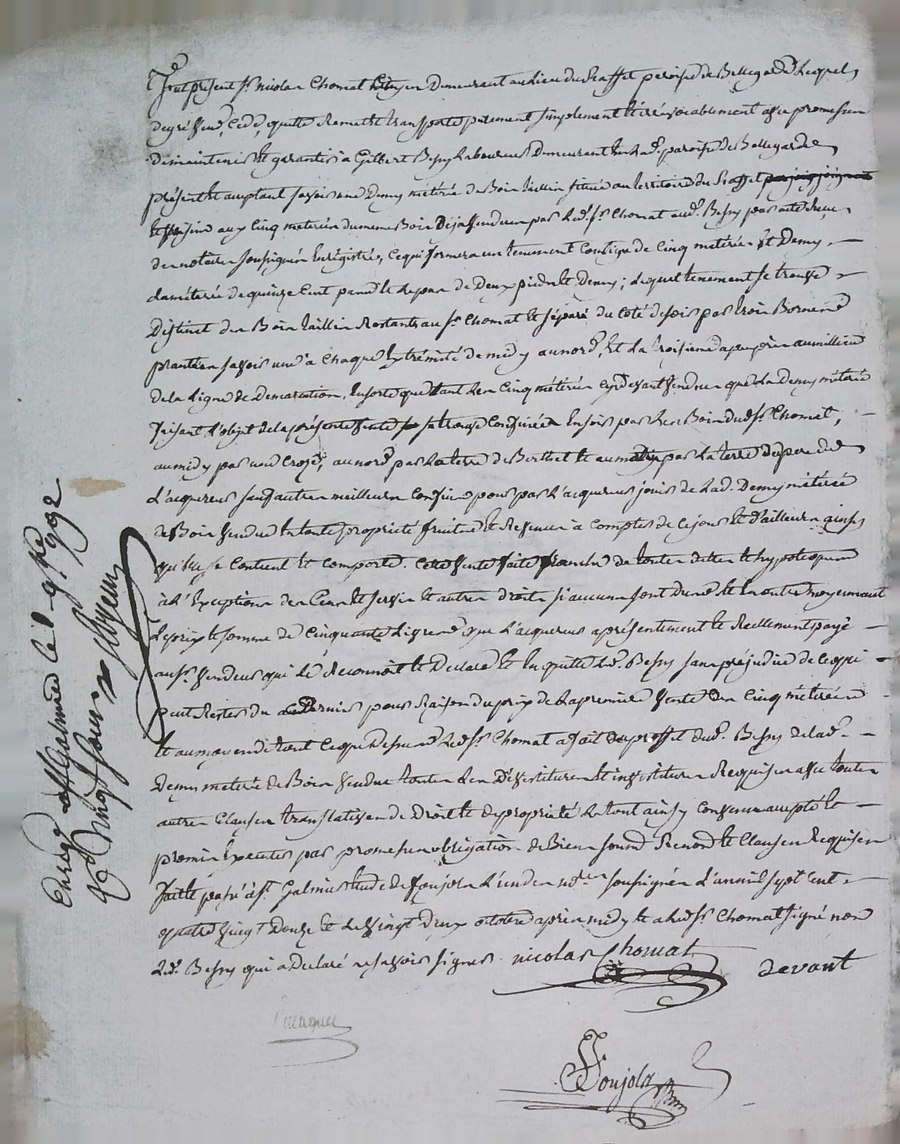 fut présent Sr nicolas Chomat Citoyen Demeurant au lieu du Staffet paroisse de Bellegarde Lequel
de gré Vend, Cedde, quitte Remet et transporte purement simplement et irrévocablement avec promesse
de maintenir et garantir à Gilbert Bessy Laboureur Demeurant en lad. paroisse de Bellegarde
présent et acceptant savoir une Demy meterée de Bois taillis située au territoire du Staffet
et joignant aux cinq meterées du meme Bois Deja vendues par led. Sr Chomat aud. Bessy par acte Reçu
du notaire soussigné Enregistré, Ce qui formera un tenement Contigu de Cinq meterées Et Demy
la meterée de quinze Cent pas et le pas de Deux pieds et Demy ; Lequel tenement se trouve
Distinct du Bois taillis Restant au Sr Chomat et séparé du Coté de soir par trois Bornes
plantées savoir une à Chaque Extrémité de midy au nord, Et La troisieme a peu près au millieu
de la Ligne de Demarcation, En sorte que tant les Cinq meterées Cy devant Vendues que La Demy meterée
faisant L'objet de la présente Vente se trouve Confinée En soir par Les Bois Dud. Sr Chomat,
au midy par une Croze, au nord par La terre de Berthet et au matin par La terre du pere de
L'acquereur sauf autres meilleurs Confins pour par L'acquereur jouir de Lad. Demy meterée
de Bois Vendue En toute propriété fruits et Revenus à Compter de Ce jour Et d'ailleurs ainsy
qu'elle se Contient et Comporte. Cette Vente faite franche de toutes dettes et hypoteques
à L'Exception des Cens et servis et autres droits si aucuns sont dus et En outre moyennant
Le prix et somme de Cinquante Livres que L'acquereur a présentement et Reellement payé
au Sr Vendeur qui Le Reconnoit et Declare et En quitte Led. Bessy sans préjudice de Ce qui
peut Rester du au Dernier pour Raison du prix de La premiere Vente des Cinq meterées
et au moyen de tout Ce que Dessus Led. Sr Chomat a fait au proffit dud. Bessy de Lad.
Demy meterée de Bois Vendue toutes Les Devestitures et investitures Requises avec toutes
autres Clauses translatives de Droit et de propriété Le tout ainsy Convenu accepté et
promis Executer par promesses obligation de Biens soumis Renonc. et Clauses Requises
fait et passé à St Galmier Etude de foujols L'un des notres soussignés L'an mil sept cent
quatre vingt Douze et Le Vingt Deux octobre après midy et a Led. Sr Chomat signé non
Led. Bessy qui a Declaré ne savoir signer. nicolas Chomat devant
Foujols
Enrégé à St Galmier le 2 9bre 1792